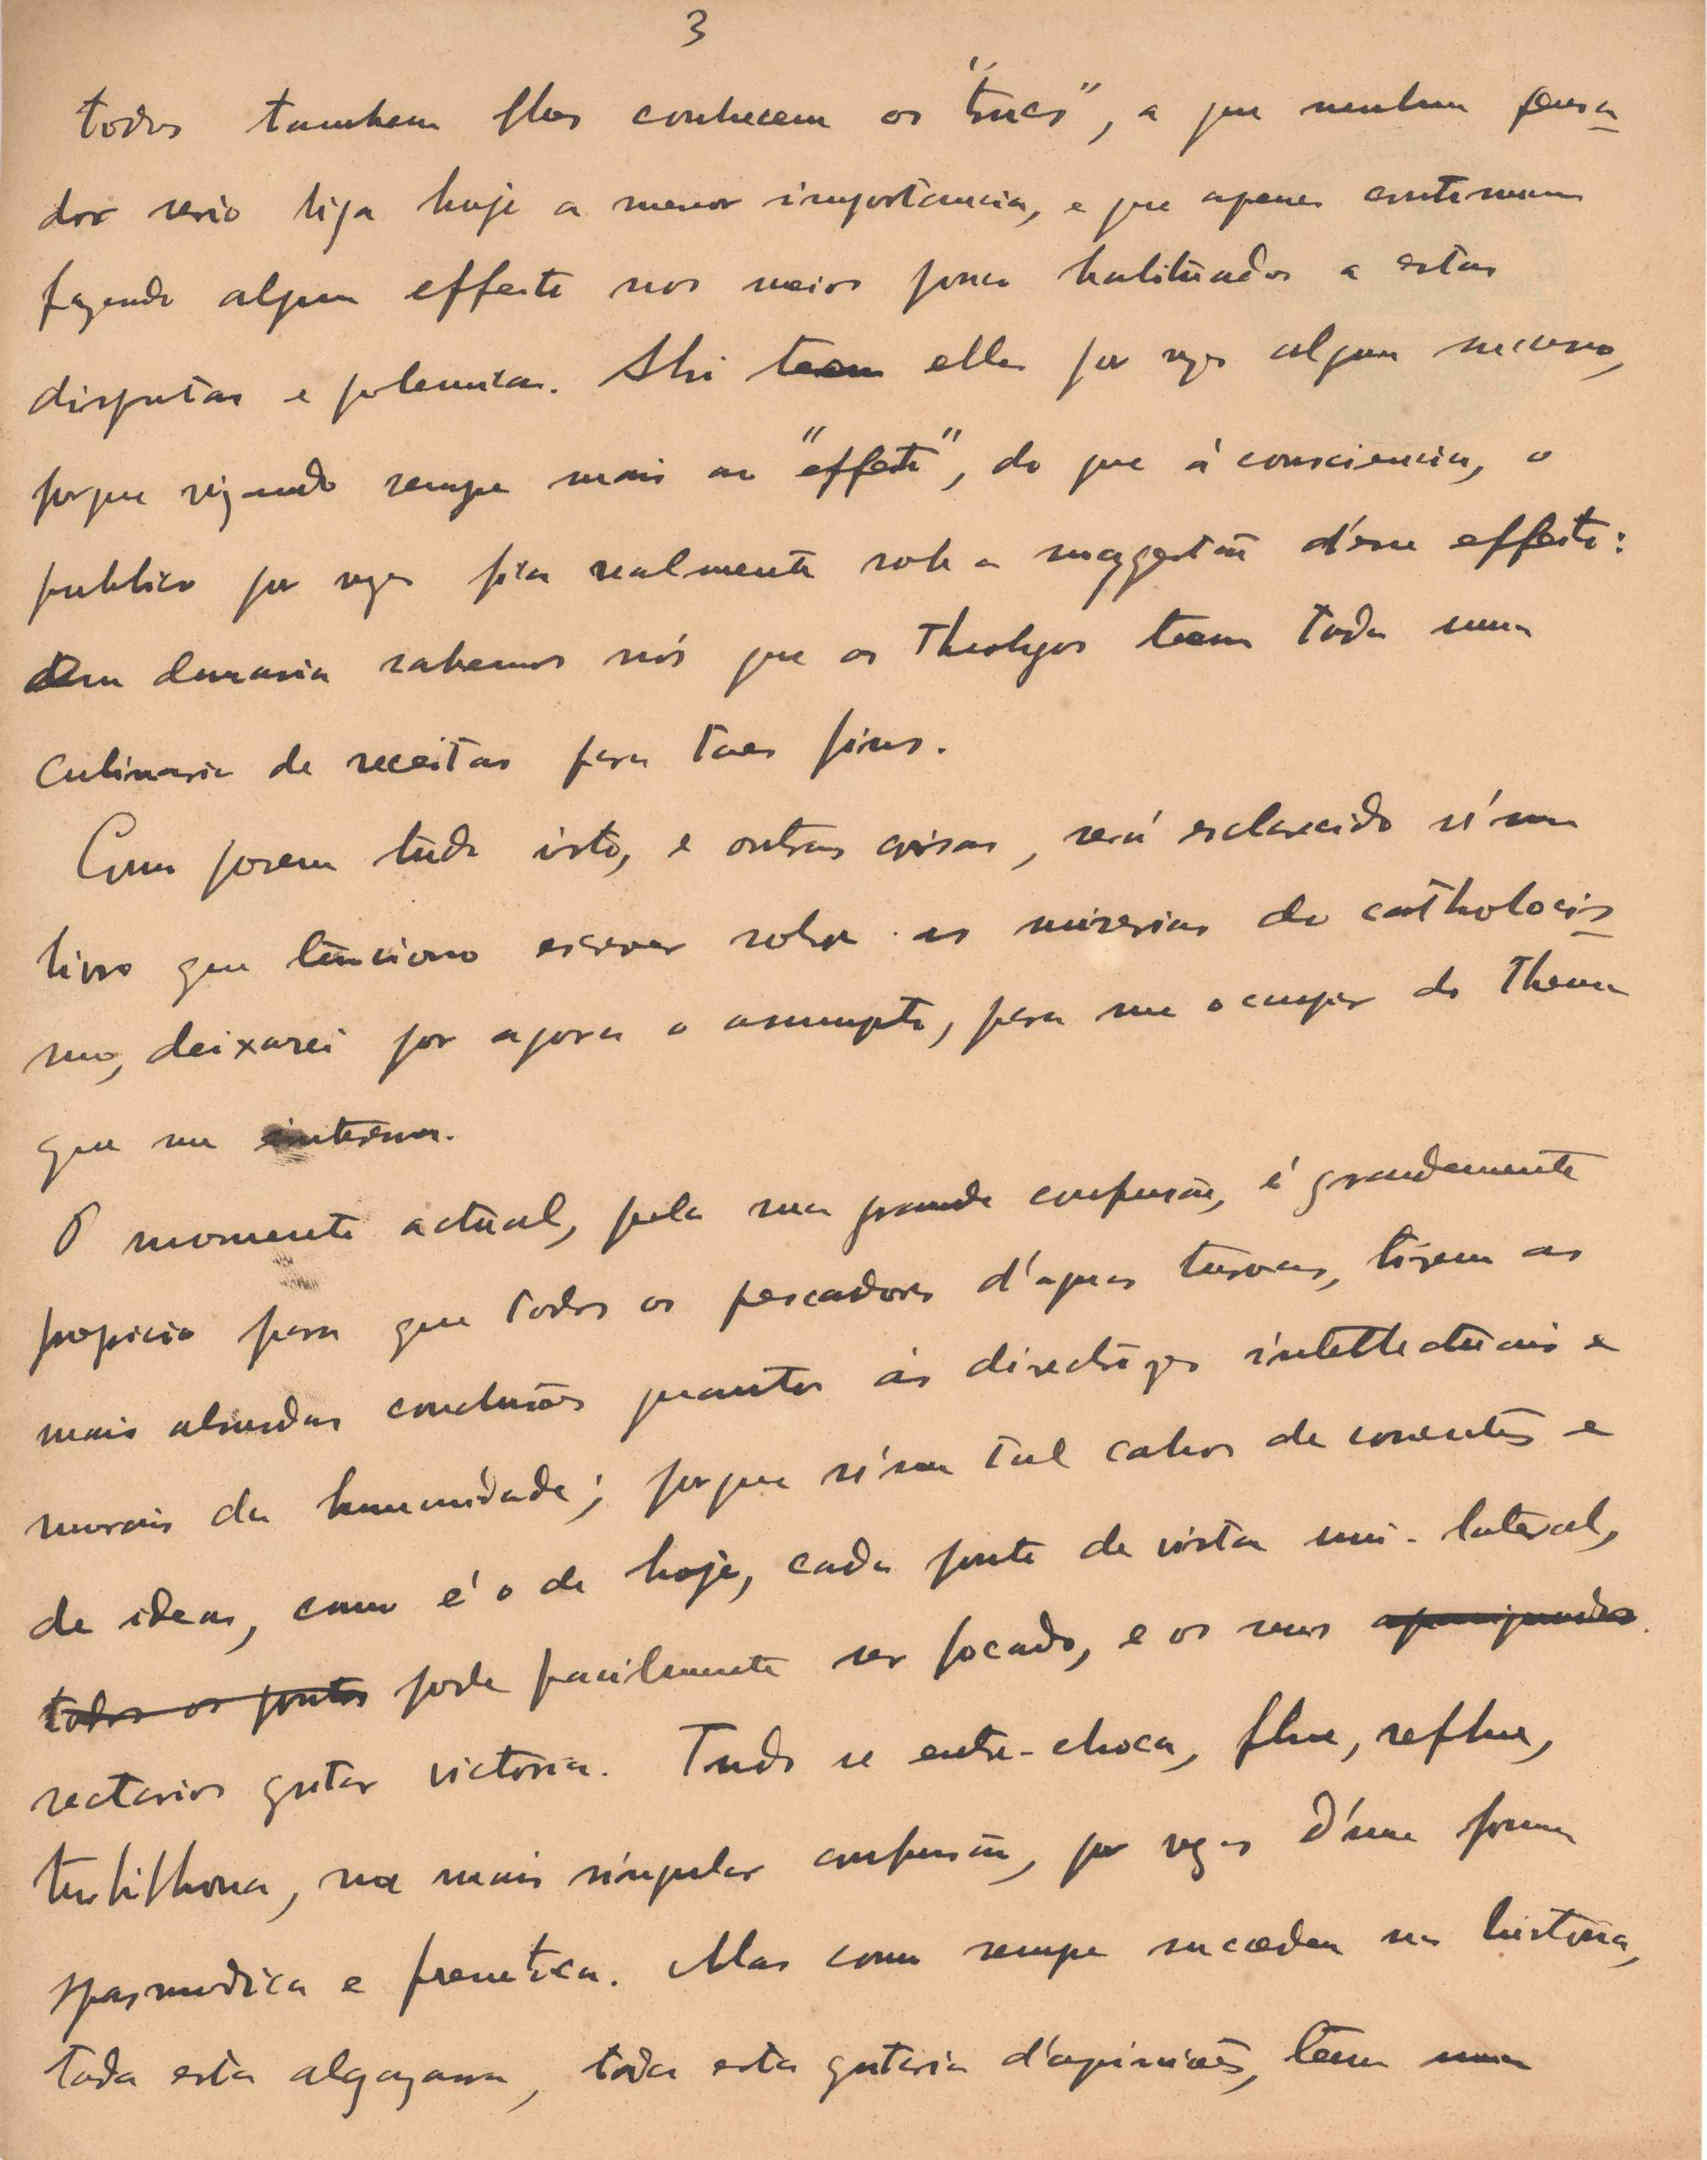 3
todos tambem lhes conhecem os "trucs", a que nenhum pensa-
dor serio liga hoje a menor importancia, e que apenas continuam
fazendo algum effeito nos meios pouco habituados a estas
disputas e polemicas. Ahi teem elles por vezes algum successo,
porque visando sempre mais ao "effeito", do que á consciencia, o
publico por vezes fica realmente sob a suggestão d'esse effeito:
Dem demasia sabemos nós que os Theologos teem toda uma
culinaria de receitas para taes fins.
Como porem tudo isto, e outras coisas, será esclarecido n'um
livro que tenciono escrever sobre as miserias do catholocis-
mo, deixarei por agora o assumpto, para me occupar do Thema
que me interessa.
O momento actual, pela sua grande confusão, é grandemente
propicio para que todos os pescadores d'aguas turvas, tirem as
mais absurdas conclusões quanto ás direcções intellectuais e
morais da humanidade; porque n'um tal cahos de correntes e
de ideas, como é o de hoje, cada ponto de vista uni-lateral,
todos os pontos pode facilmente ser focado, e os seus apaniguados
sectarios gritar victoria. Tudo se entre-choca, flue, reflue,
turbilhona, na mais singular confusão, por vezes d'uma forma
spasmodica e frenetica. Mas como sempre succedeu na historia,
toda esta algazarra, toda esta gritaria d'opiniões, teem uma